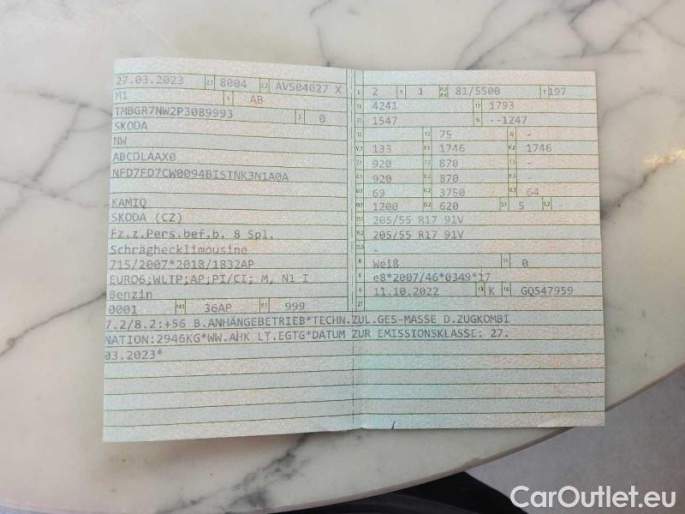 27.03.2023 8004 AVS04027 X
M1 AB
TMBGR7NW2P3089993 0
SKODA
NW
ABCDLAAX0
NFD7FD7CW0094BISTNK3N1A0A
KAMIQ
SKODA (CZ)
Fz.z.Pers.bef.b. 8 Spl.
Schräghecklimousine
715/2007*2018/1832AP
EURO6;WLTP;AP;PI/CI; M, N1 I
Benzin
0001 36AP 999
7.2/8.2:+56 B.ANHÄNGEBETRIEB*TECHN.ZUL.GES-MASSE D.ZUGKOMBI
NATION:2946KG*WW.AHK LT.EGTG*DATUM ZUR EMISSIONSKLASSE: 27.
03.2023*
2 1 81/5500 197
4241 1793
1547 --1247
75 -
133 1746 1746
920 870 -
920 870 -
69 3750 64
1200 620 5 -
205/55 R17 91V
205/55 R17 91V
-
Weiß 0
e8*2007/46*0349*17
11.10.2022 K GQ547959
CarOutlet.eu